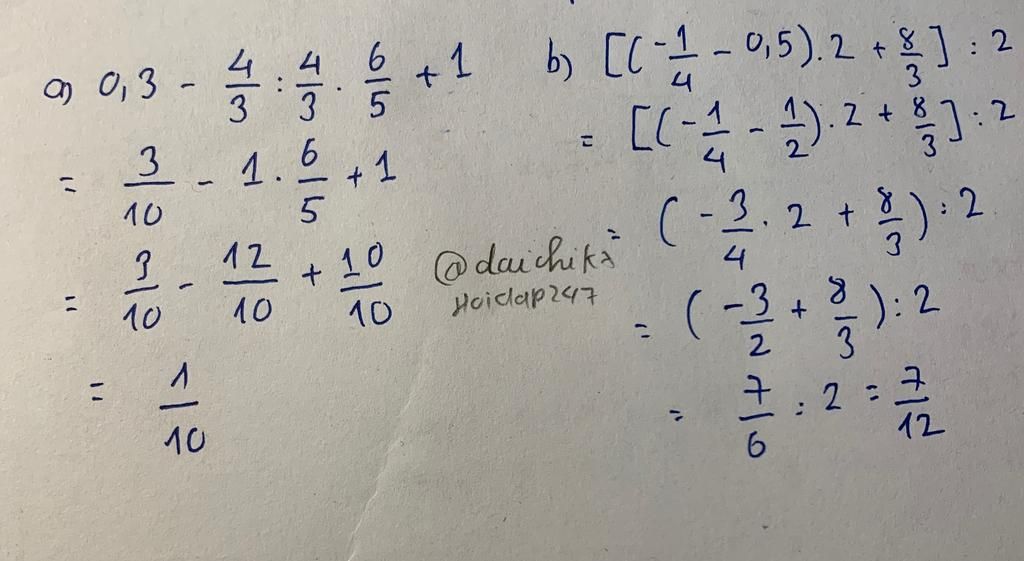 a) 0,3 - 4/3 : 4/3 . 6/5 + 1
= 3/10 - 1 . 6/5 + 1
= 3/10 - 12/10 + 10/10
= 1/10
@daichiks
Hoidap247
b) [(-1/4 - 0,5).2 + 8/3] : 2
= [(-1/4 - 1/2).2 + 8/3] : 2
= (-3/4 . 2 + 8/3) : 2
= (-3/2 + 8/3) : 2
= 7/6 : 2 = 7/12